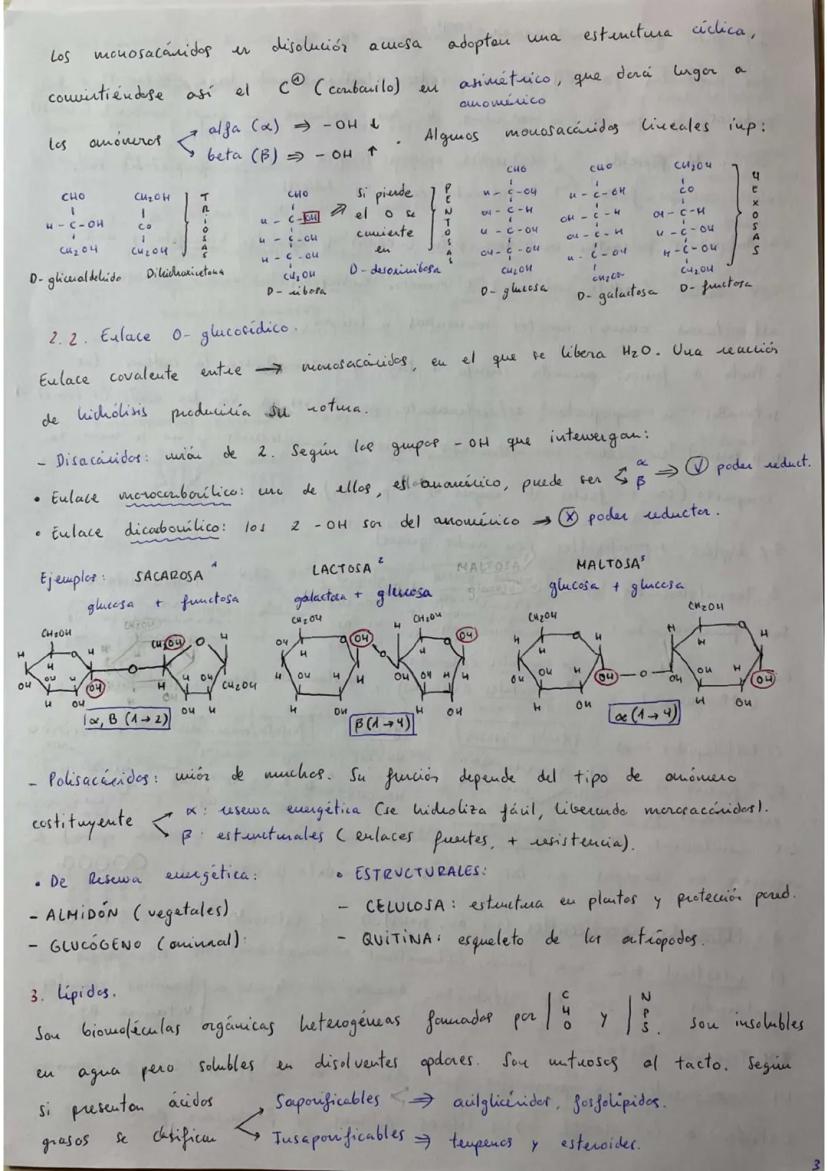 Los monosacáridos en disolución acuosa adoptan una estructura cíclica,
convirtiéndose así el C① (carbonilo) en asimétrico, que dará lugar a
anomérico
los anómeros alfa (α) ⇒ -OH ↓ . Algunos monosacáridos lineales imp:
beta (β) ⇒ -OH ↑
CHO
H - C - OH
CH₂OH
D-gliceraldehído
CH₂OH
CO
CH₂OH
Dihidroxicetona
TRIOSAS
CHO
H - C - OH
H - C - OH
H - C - OH
CH₂OH
D-ribosa
⇒ Si pierde
el O se
convierte
en
D-desoxirribosa
PENTOSAS
CHO
H - C - OH
OH - C - H
H - C - OH
OH - C - H
CH₂OH
D-glucosa
CHO
H - C - OH
OH - C - H
OH - C - H
H - C - OH
CH₂OH
D-galactosa
CH₂OH
CO
OH - C - H
H - C - OH
H - C - OH
CH₂OH
D-fructosa
HEXOSAS
2.2. Enlace O-glucosídico.
Enlace covalente entre → monosacáridos, en el que se libera H₂O. Una reacción
de hidrólisis produciría su rotura.
- Disacáridos: unión de 2. Según los grupos -OH que intervengan:
• Enlace monocarbonílico: uno de ellos, es anomérico, puede ser α β ⇒ ✓ poder reduct.
• Enlace dicarbonílico: los 2 -OH son del anomérico → ⓧ poder reductor.
Ejemplos: SACAROSA ¹ LACTOSA ² MALTOSA ³
glucosa + fructosa galactosa + glucosa glucosa + glucosa
CH₂OH CH₂OH CH₂OH CH₂OH CH₂OH
CH₂OH
α, β (1→2) β (1→4) α (1→4)
- Polisacáridos: unión de muchos. Su función depende del tipo de anómero
costituyente α: reserva energética (se hidroliza fácil, liberando monosacáridos).
β: estructurales (enlaces fuertes, + resistencia).
• De Reserva energética: • ESTRUCTURALES:
- ALMIDÓN (vegetales) - CELULOSA: estructura en plantas y protección pared.
- GLUCÓGENO (animal) - QUITINA: esqueleto de los artrópodos.
3. Lípidos.
Son biomoléculas orgánicas heterogéneas formadas por | C H O y | N P S. Son insolubles
en agua pero solubles en disolventes apolares. Son untuosos al tacto. Según
si presentan ácidos Saponificables ⇒ acilglicéridos, fosfolípidos.
grasos se clasifican Insaponificables ⇒ terpenos y esteroides.
3